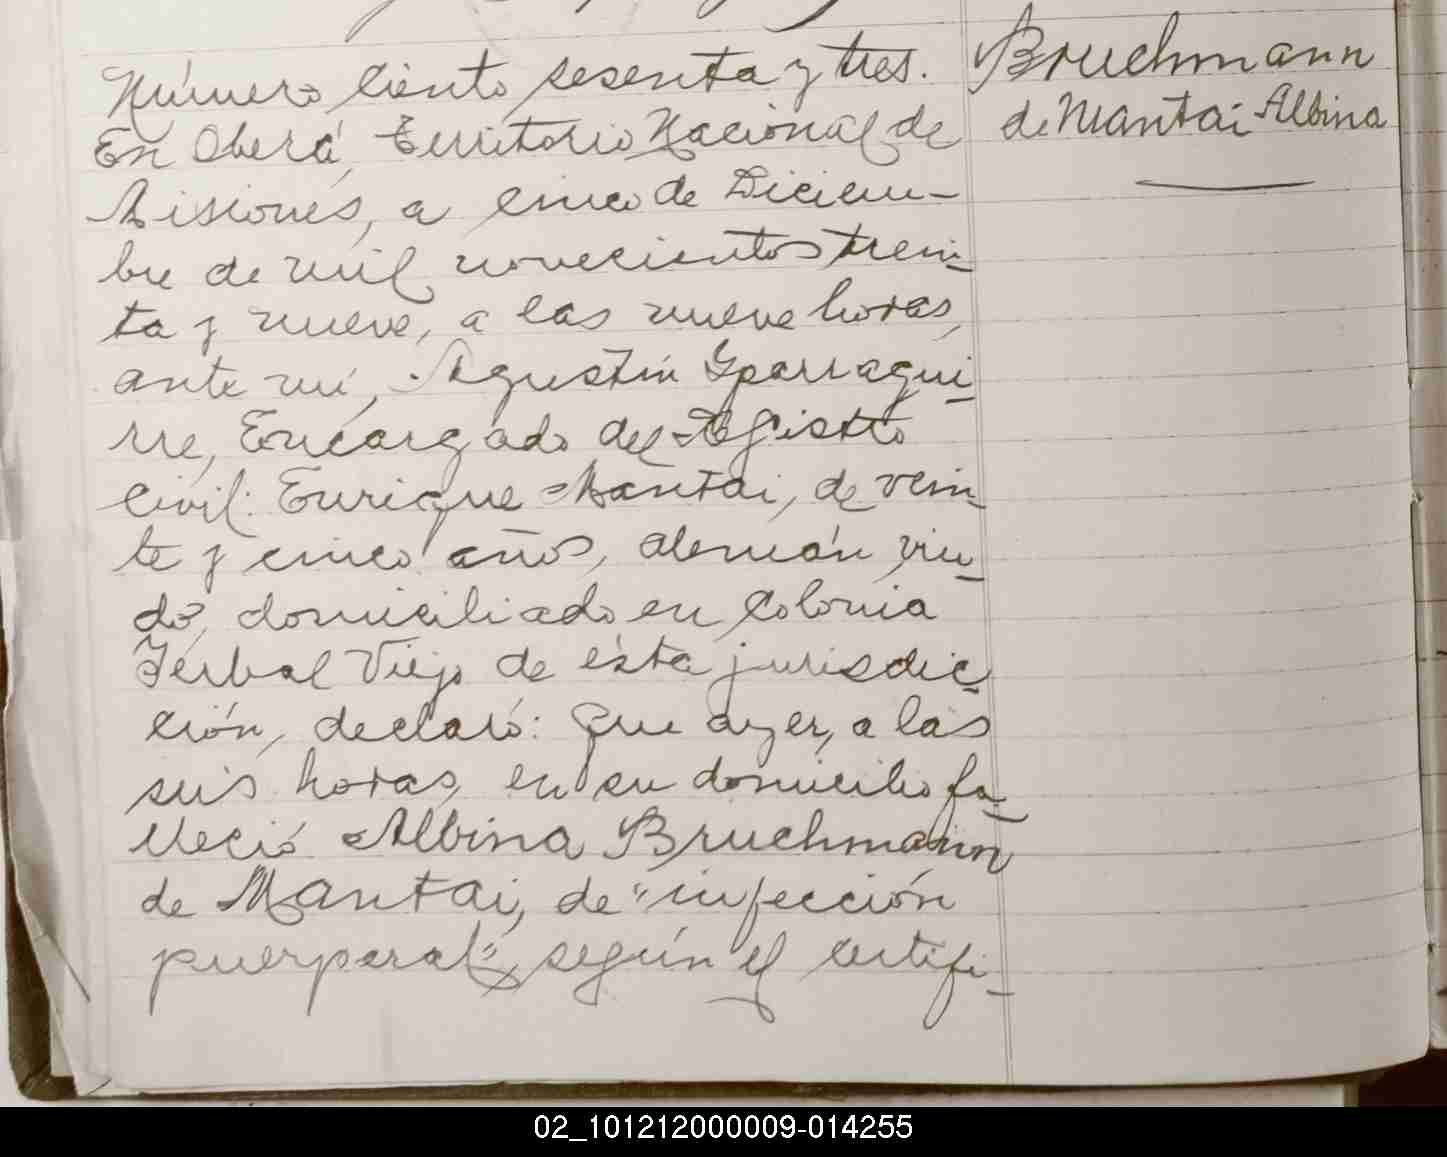 Número ciento sesenta y tres.
En Oberá, Territorio Nacional de
Misiones, a cinco de Diciem-
bre de mil novecientos trein-
ta y nueve, a las nueve horas,
ante mí, Agustín Yparragui-
rre, Encargado del Registro
Civil: Enrique Mantai, de vein-
te y cinco años, alemán, viu-
do, domiciliado en Colonia
Yerbal Viejo de ésta jurisdic-
ción, declaró: Que ayer, a las
seis horas, en su domicilio fa-
lleció Albina Bruchmann
de Mantai, de "infección
puerperal", según el certifi-
Bruchmann
de Mantai Albina
02_101212000009-014255